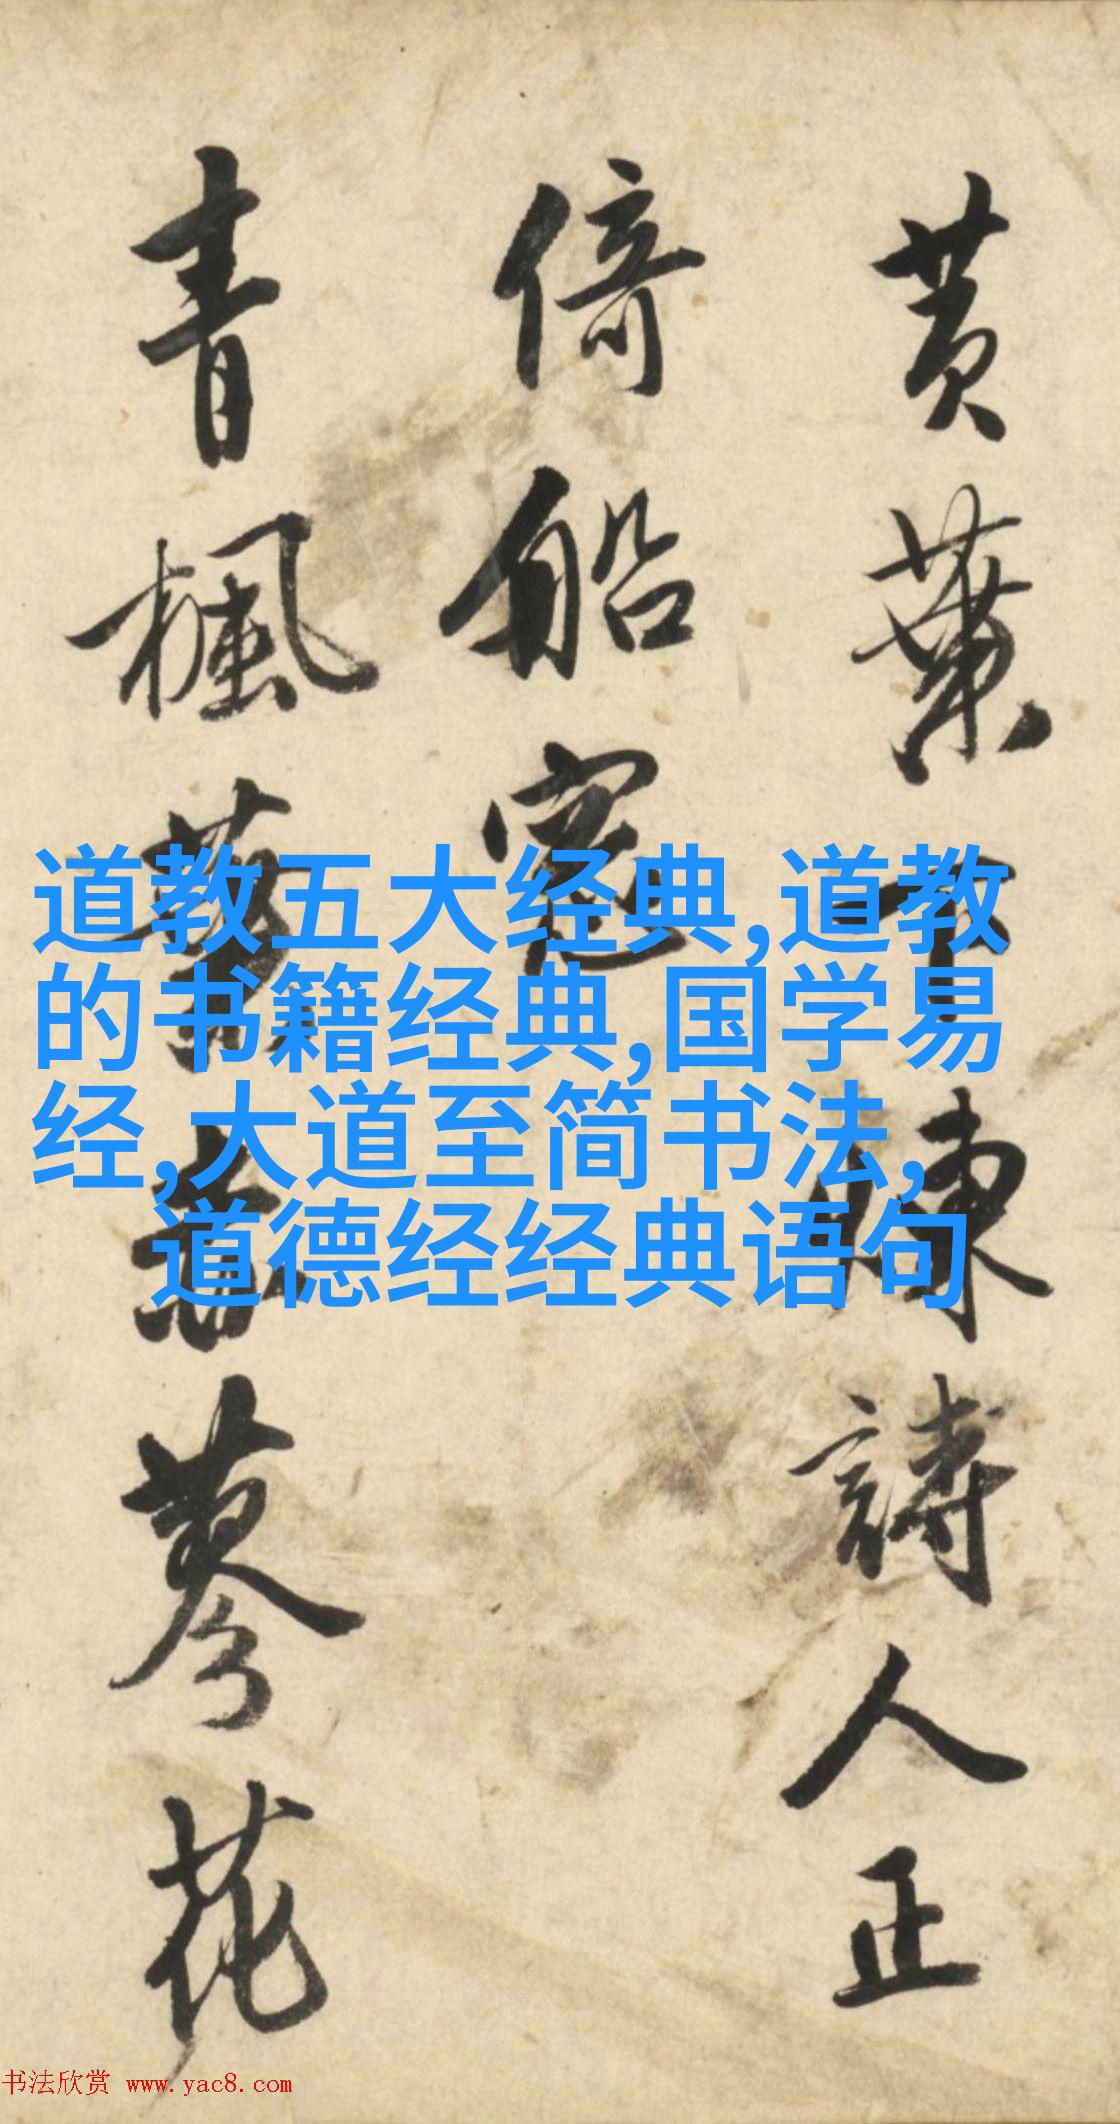 黄葉下陳詩人正
倚船窓
青楓葉赤蓼花
道教五大经典,道教
的书籍经典,国学易
经,大道至简书法,
道德经经典语句
书法欣赏 www.yac8.com